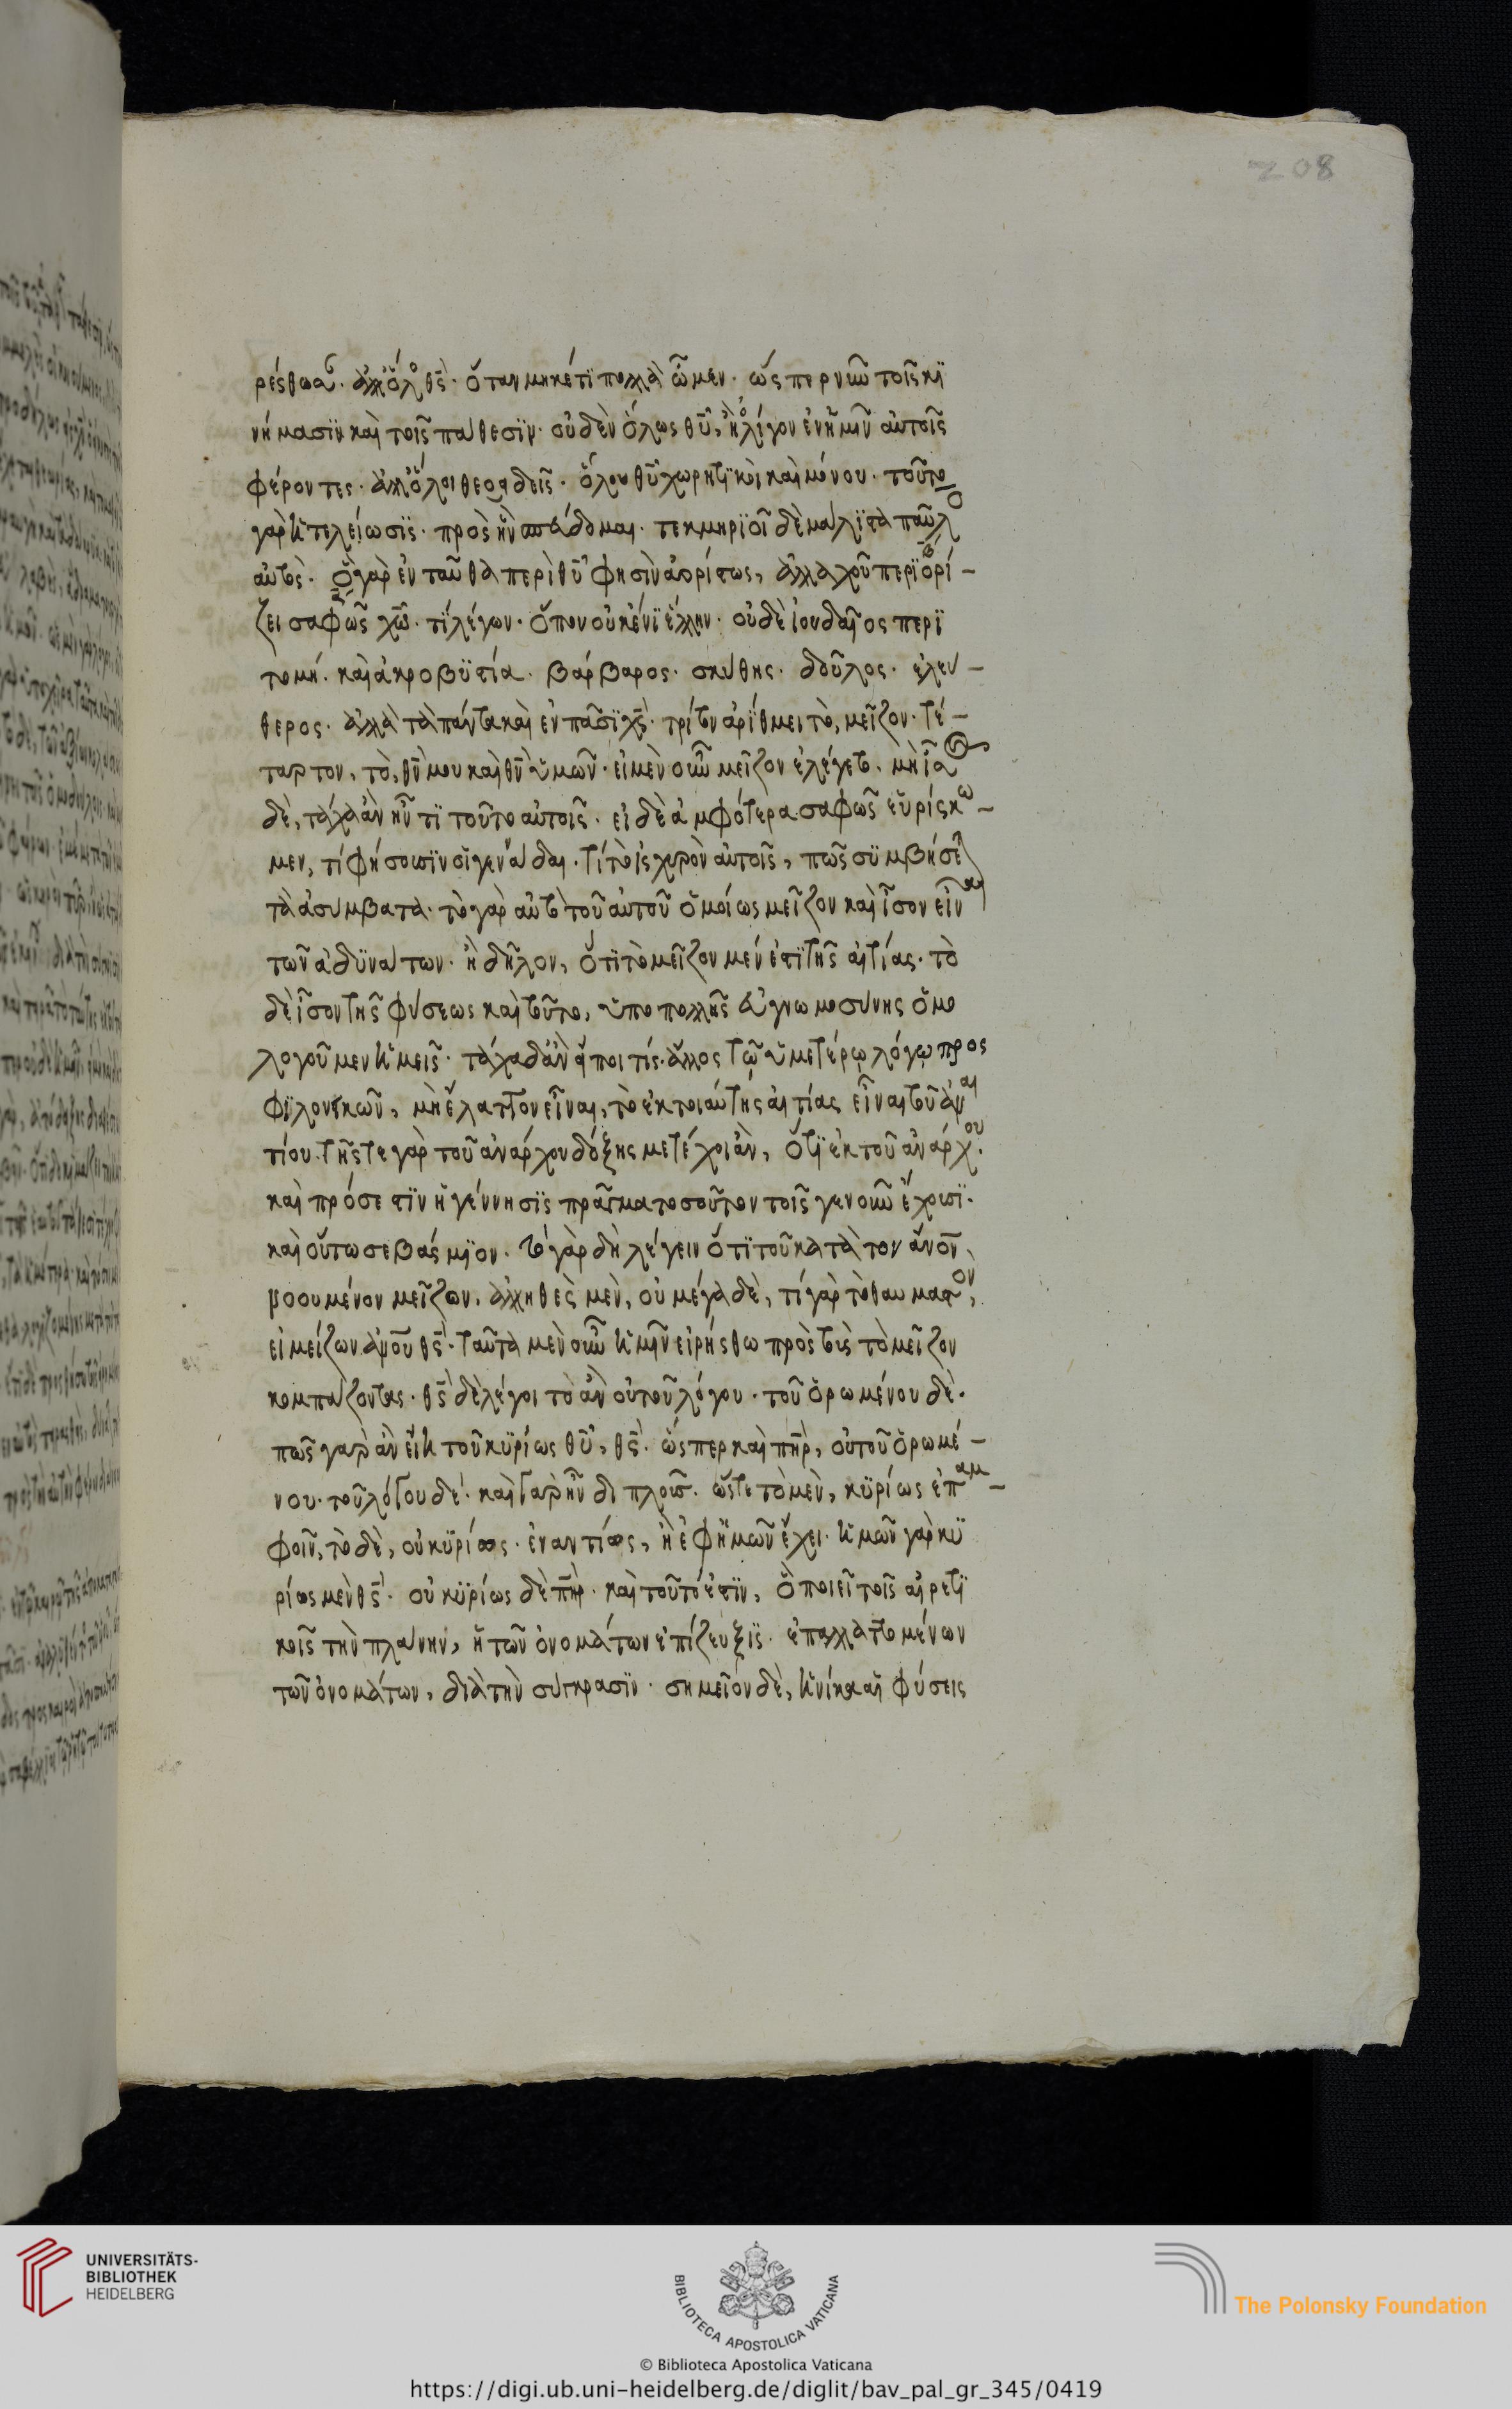 208
ρέσθωσ. ἀλλ' ὅλος θς̄. ὅταν μηκέτϊ πολλὰ ὦμεν. ὥσπερ νῦν τοῖς κϊ
νήμασϊν καὶ τοῖς πάθεσϊν. οὐδὲν ὅλως θῡ, ἢ ὀλίγον ἐν ἡμῖν αὐτοῖς
φέροντες. ἀλλ' ὅλοι θεοειδεῖς. ὅλου θῡ χωρητϊκοὶ καὶ μόνου. τοῦτο
γὰρ ἡ τελείωσϊς. πρὸς ἣν σπεύδομαι. τεκμηρϊοῖ δὲ μάλϊστα παῦλο
αὐτὸς. ὃ γὰρ ἐνταῦθα περὶ θῡ φησὶν ἀορίστως, ἀλλαχοῦ περϊορί-
ζει σαφῶς χω̄. τϊ λέγων. ὅπου οὐκ ἔνϊ ἕλλην. οὐδὲ ἰουδαῖος περϊ
τομή. καὶ ἀκροβϋστία. βάρβαρος. σκύθης. δοῦλος. ἐλεύ-
θερος. ἀλλὰ τὰ πάντα καὶ ἐν πᾶσϊ χς̄. τρίτον ἀρίθμει τὸ, μεῖζον. τέ-
ταρτον, τὸ, θν̄ μου καὶ θν̄ ὑμῶν. εἰ μὲν οὖν μεῖζον ἐλέγετο. μὴ ἶσα
δὲ, τάχα ἂν ἦν τϊ τοῦτο αὐτοῖς. εἰ δὲ ἀμφότερα σαφῶς εὑρίσκο-
μεν, τί φήσουσϊν οἱ γεννάδαι. τί τὸ ἰσχυρὸν αὐτοῖς, πῶς συμβήσε
τὰ ἀσύμβατα. τὸ γὰρ αὐτὸ τοῦ αὐτοῦ ὁμοίως μεῖζον καὶ ἶσον εἶναι
τῶν ἀδϋνάτων. ἢ δῆλον, ὅτι τὸ μεῖζον μέν ἐστϊ τῆς αἰτίας. τὸ
δὲ ἶσον τῆς φύσεως καὶ τοῦτο, ὑπο πολλῆς εὐγνωμοσύνης ὁμο
λογοῦμεν ἡμεῖς. τάχα δ' ἂν εἴποι τίς. ἄλλος τῷ ἡμετέρῳ λόγῳ προσ
φϊλονεικῶν, μὴ ἔλαττον εἶναι, τὸ ἐκ τοιαύτης αἰτίας εἶναι τοῦ ἀναι
τίου. τῆς τε γὰρ τοῦ ἀνάρχου δόξης μετέχοι ἂν, ὅτϊ ἐκ τοῦ ἀνάρχου.
καὶ πρόσεστϊν ἡ γέννησϊς πρᾶγμα τοσοῦτον τοῖς γε νοῦν ἔχουσϊ.
καὶ οὕτω σεβάσμϊον. τὸ γὰρ δὴ λέγειν ὅτϊ τοῦ κατὰ τον ἄνον̄
νοουμένου μεῖζων, ἀληθὲς μὲν, οὐ μέγα δὲ, τί γὰρ τὸ θαυμαστὸν,
εἰ μείζων ἀνου̅ θς̄. ταῦτα μὲν οὖν ἡμῖν εἰρήσθω πρὸς τοὺς τὸ μεῖζον
κομπάζοντας. θς̄ δὲ λέγοιτο ἂν οὐ τοῦ λόγου. τοῦ ὁρωμένου δὲ.
πῶς γὰρ ἂν εἴη τοῦ κϋρίως θῡ, θς̄. ὥσπερ καὶ πηρ̄, οὐ τοῦ ὁρωμέ-
νου. τοῦ λόγου δὲ. καὶ γαρ ἦν διπλοῦς. ὥστε τὸ μὲν, κϋρίως ἐπ' ἀμ-
φοῖν, τὸ δὲ, οὐ κϋρίως. ἐναντίως, ἢ ἐφ' ἡμῶν ἔχει. ἡμῶν γὰρ κϋ
ρίως μὲν θς̄. οὐ κϋρίως δὲ πηρ̄. καὶ τοῦτό ἐστϊν, ὃ ποιεῖ τοῖς αἱρετϊ
κοῖς τὴν πλάνην, ἡ τῶν ὀνομάτων ἐπίζευξϊς. ἐπαλλαττομένων
τῶν ὀνομάτων, διὰ τὴν σύγκρασϊν. σημεῖον δὲ, ἡνίκα αἱ φύσεις
UNIVERSITÄTS-
BIBLIOTHEK
HEIDELBERG
BIBLIOTECA APOSTOLICA VATICANA
The Polonsky Foundation
© Biblioteca Apostolica Vaticana
https://digi.ub.uni-heidelberg.de/diglit/bav_pal_gr_345/0419